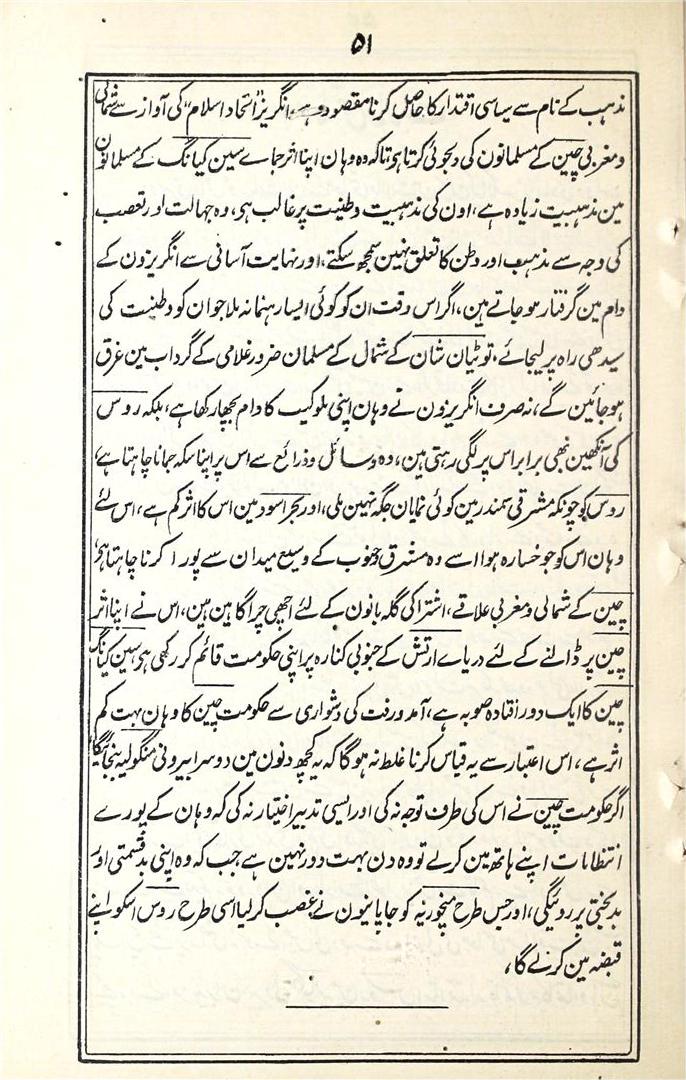 ۵۱
مذہب کے نام سے سیاسی اقتدار کا حاصل کرنا مقصود ہے، انگریز "اتحاد اسلام" کی آواز سے شمالی
و مغربی چین کے مسلمانون کی دلجوئی کرتا ہوتا کہ وہ وہان اپنا اثر جمائے سین کیانگ کے مسلمانون
مین مذہبیت زیادہ ہے، اون کی مذہبیت وطنیت پر غالب ہی، وہ جہالت اور تعصب
کی وجہ سے مذہب اور وطن کا تعلق نہین سمجھ سکتے، اور نہایت آسانی سے انگریزون کے
دام مین گرفتار ہو جاتے ہین، اگر اس وقت ان کو کوئی ایسا رہنما نہ ملا جو ان کو وطنیت کی
سیدھی راہ پر لیجائے، تو ٹیان شان کے شمال کے مسلمان ضرور غلامی کے گرداب مین غرق
ہو جائین گے، نہ صرف انگریزون نے وہان اپنی ملوکیت کا دام بچھا رکھا ہے، بلکہ روس
کی آنکھین بھی برابر اس پر لگی رہتی ہین، وہ وسائل و ذرائع سے اس پر اپنا سکہ جمانا چاہتا ہے،
روس کو چونکہ مشرقی سمندر مین کوئی نمایان جگہ نہین ملی، اور بحر اسود مین اس کا اثر کم ہے، اس لئے
وہان اس کو جو خسارہ ہوا اسے وہ مشرق و جنوب کے وسیع میدان سے پورا کرنا چاہتا ہی،
چین کے شمالی و مغربی علاقے، اشتراکی گلہ بانون کے لئے اچھی چراگاہین ہین، اس نے اپنا اثر
چین پر ڈالنے کے لئے دریاے ارتش کے جنوبی کنارہ پر اپنی حکومت قائم کر رکھی ہی سین کیانگ
چین کا ایک دور افتادہ صوبہ ہے، آمد و رفت کی دشواری سے حکومت چین کا وہان بہت کم
اثر ہے، اس اعتبار سے یہ قیاس کرنا غلط نہ ہوگا کہ یہ کچھ دنون مین دوسرا بیرونی منگولیہ بنجائیگا،
اگر حکومت چین نے اس کی طرف توجہ نہ کی اور ایسی تدبیر اختیار نہ کی کہ وہان کے پورے
انتظامات اپنے ہاتھ مین کر لے تو وہ دن بہت دور نہین ہے جب کہ وہ اپنی بدقسمتی اور
بدبختی پر روئیگی، اور جس طرح منچوریہ کو جاپانیون نے غصب کر لیا اسی طرح روس اسکو اپنے
قبضہ مین کر لے گا،